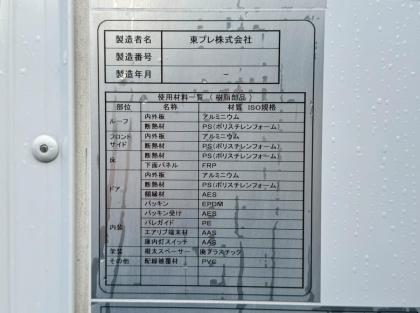 製造者名 東プレ株式会社
製造番号
製造年月 －
使用材料一覧（樹脂部品）
部位 名称 材質 ISO規格
ルーフ 内外板 アルミニウム
断熱材 PS(ポリスチレンフォーム)
フロント サイド 内外板 アルミニウム
断熱材 PS(ポリスチレンフォーム)
床 断熱材 PS(ポリスチレンフォーム)
下面パネル FRP
ドア 内外板 アルミニウム
断熱材 PS(ポリスチレンフォーム)
額縁材 AES
パッキン EPDM
内装 パッキン受け AES
バレガイド PE
エアリブ端末材 AAS
庫内灯スイッチ AAS
架装 根太スペーサー 廃プラスチック
その他 配線被覆材 PVC